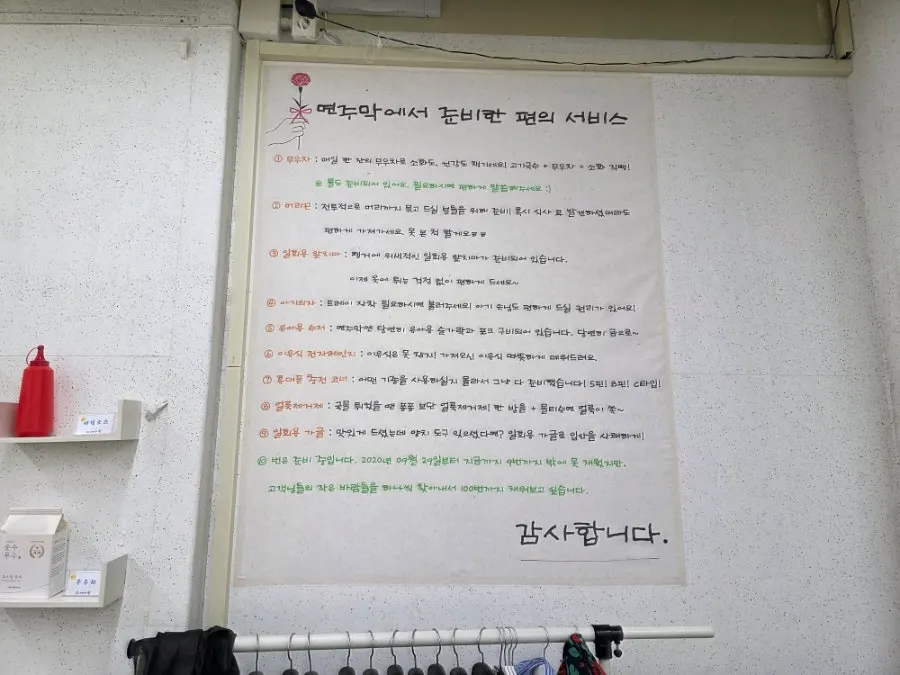 면주막에서 준비한 편의 서비스
① 무우차 : 매일 한 잔의 무우차로 소화도, 건강도 챙기세요! 고기국수 + 무우차 = 소화 직빵!
※ 물도 준비되어 있어요. 필요하시면 편하게 말씀해주세요 :)
② 머리끈 : 전투적으로 머리까지 묶고 드실 분들을 위해 준비! 혹시 식사 후 발견하셨더라도
편하게 가져가세요. 못 본 척 할게요ㅎㅎ
③ 일회용 앞치마 : 행거에 위생적인 일회용 앞치마가 준비되어 있습니다.
이제 옷에 튀는 걱정 없이 편하게 드세요~
④ 아기의자 : 트레이 장착 필요하시면 불러주세요! 아기 손님도 편하게 드실 권리가 있어요!
⑤ 유아용 수저 : 면주막엔 당연히 유아용 숟가락과 포크 구비되어 있습니다. 당연히 공으로~
⑥ 이유식 전자레인지 : 이유식은 못 참지! 가져오신 이유식 따뜻하게 데워드려요.
⑦ 휴대폰 충전 코너 : 어떤 기종을 사용하실지 몰라서 그냥 다 준비했습니다! 5핀! 8핀! C타입!
⑧ 얼룩제거제 : 국물 튀었을 땐 퐁퐁 보단 얼룩제거제! 한 방울 + 물티슈면 얼룩이 쏙~
⑨ 일회용 가글 : 맛있게 드셨는데 양치 도구 잊으셨다면? 일회용 가글로 입안을 상쾌하게!
⑩ 번은 준비 중입니다. 2020년 09월 29일부터 지금까지 9번까지 밖에 못 채웠지만,
고객님들의 작은 바람들을 하나씩 찾아내서 100번까지 채워보고 싶습니다.
감사합니다.
순수
무우